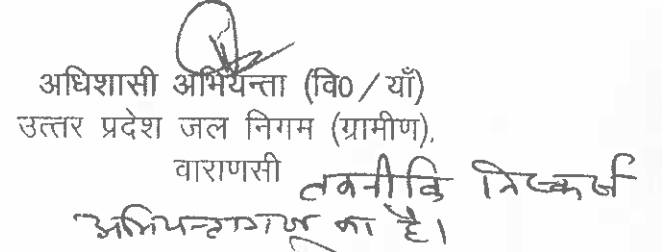 अधिशासी अभियन्ता (वि०/याँ)
उत्तर प्रदेश जल निगम (ग्रामीण),
वाराणसी तकनीकि निष्कर्ष
अभियन्तागण का है।